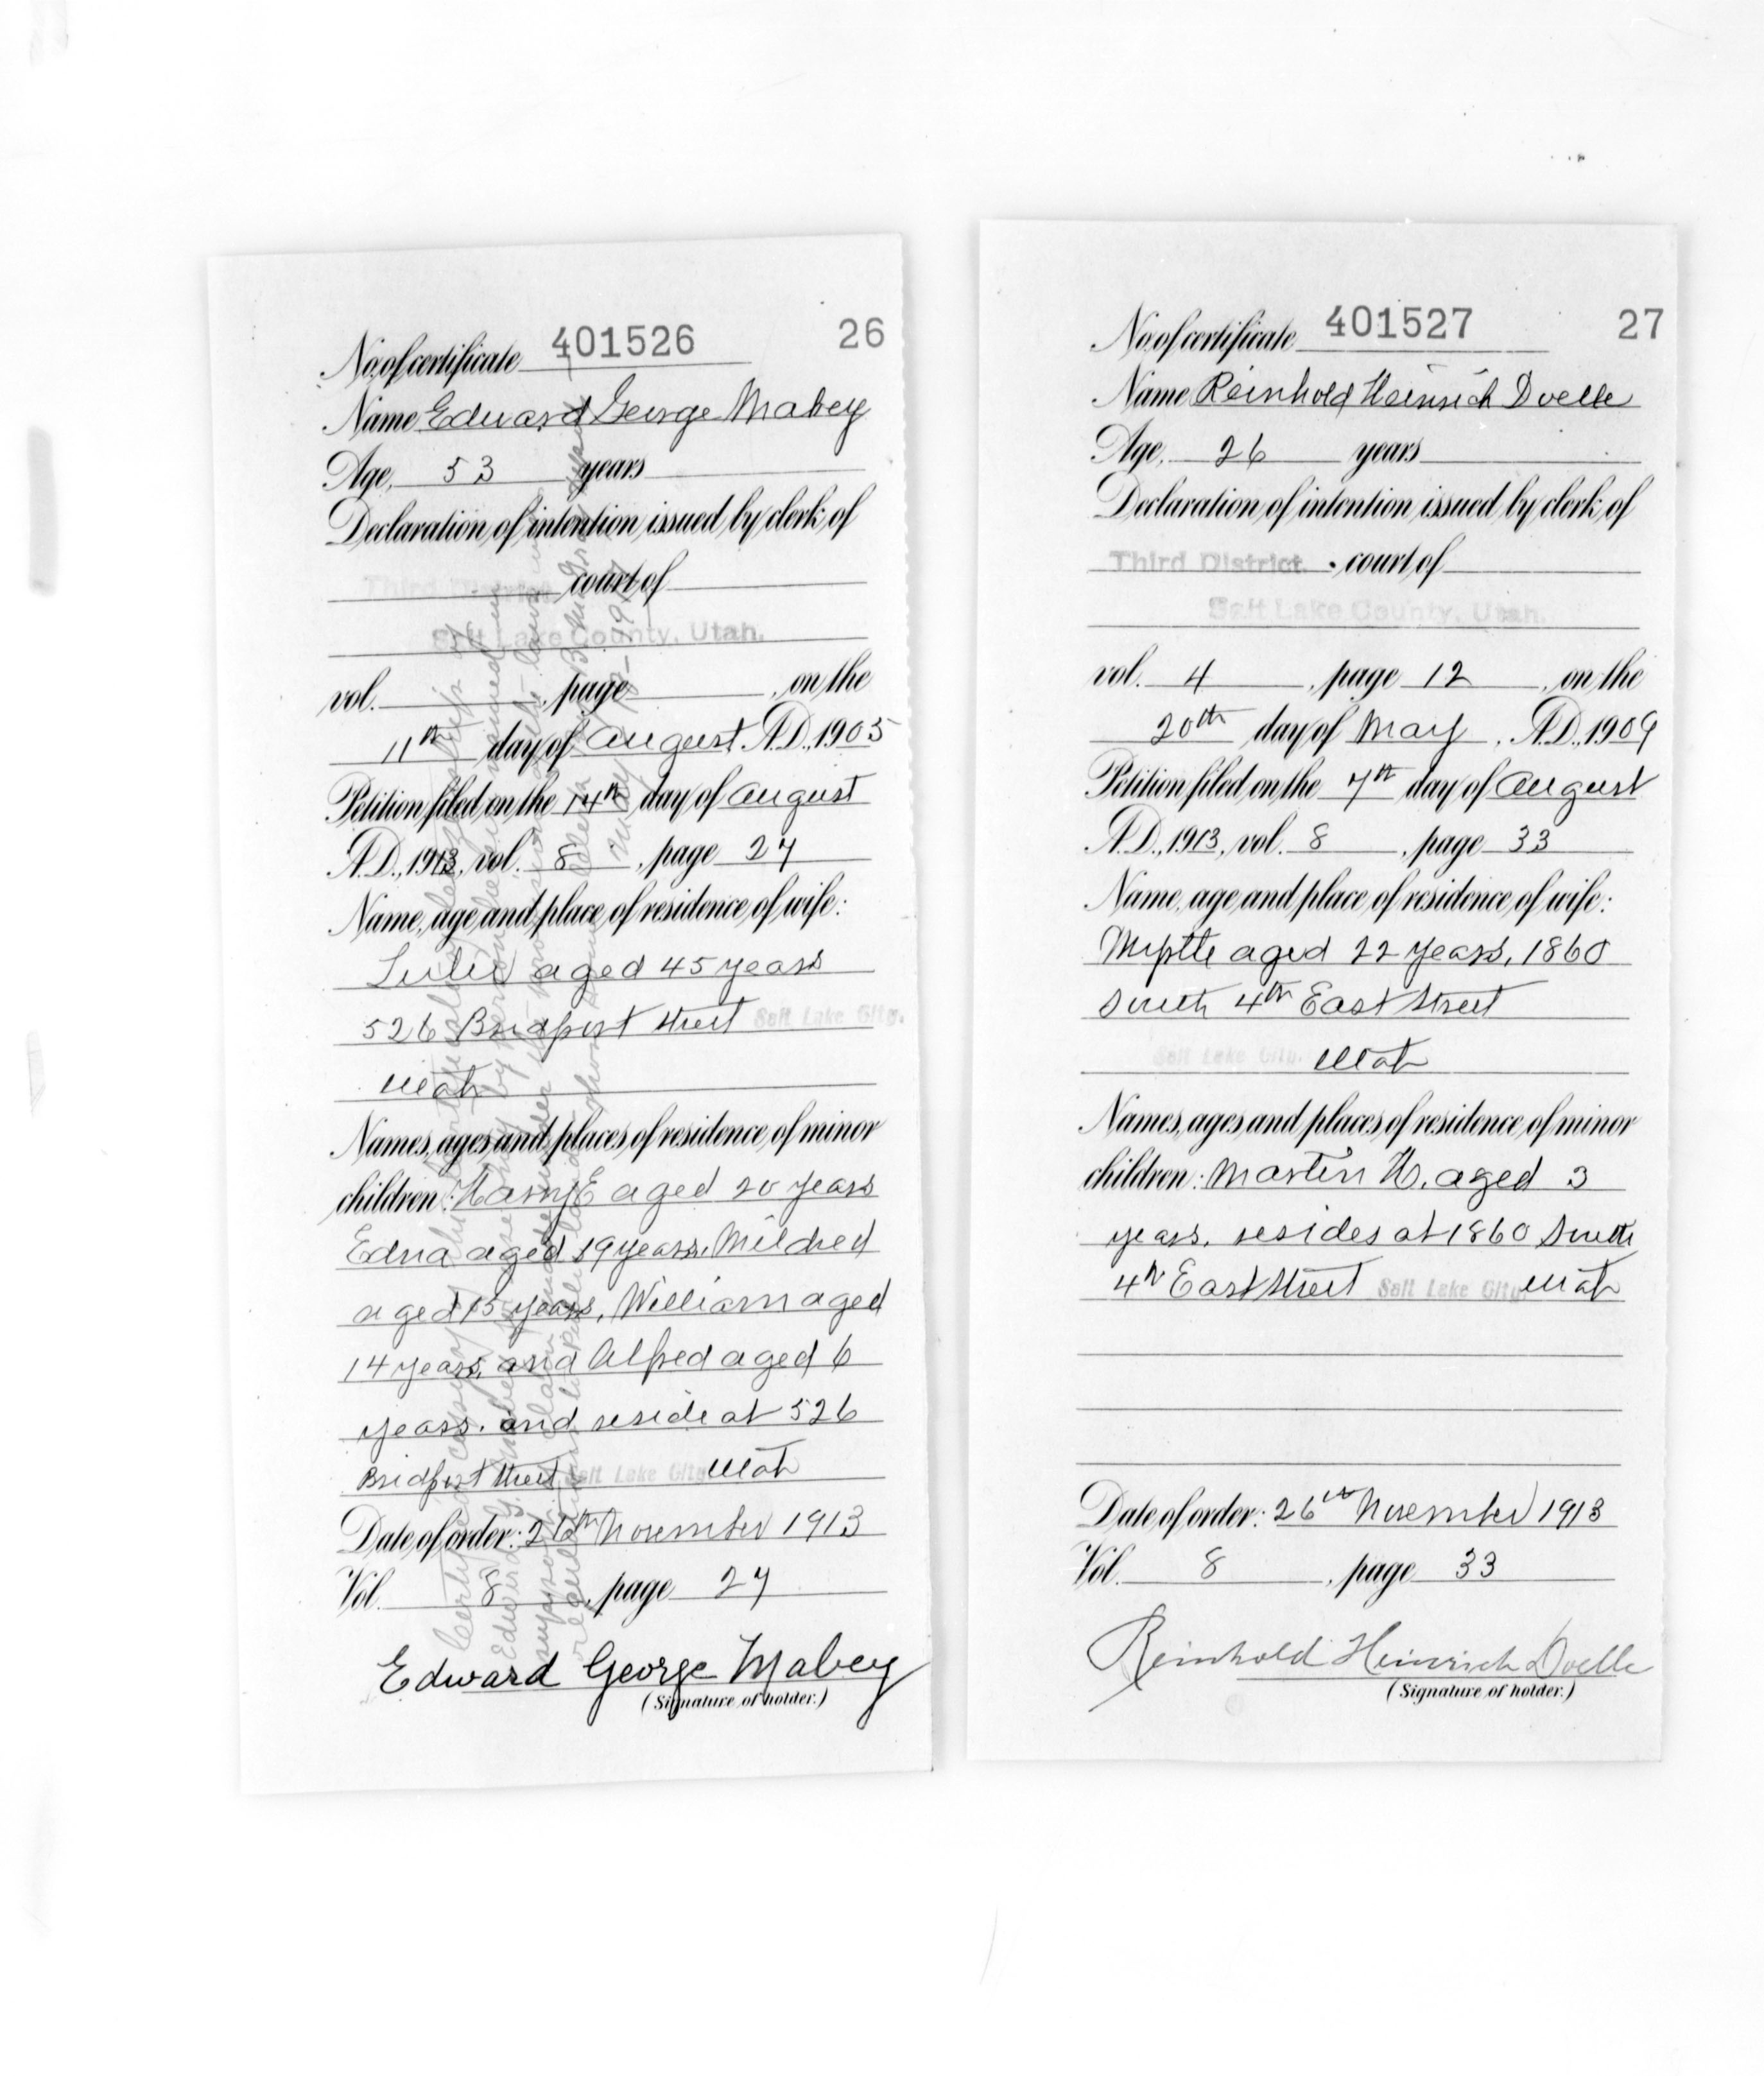 401526
26
No. of certificate
Name Edward George Mabey
Age, 53 years
Declaration of intention issued by clerk of
Third District court of
Salt Lake County, Utah.
vol. , page , on the
11th day of August A.D., 1905
Petition filed on the 14th day of August
A.D., 1913, vol. 8 , page 27
Name, age and place of residence of wife:
aged 45 years
526 Bridport Street Salt Lake City.
Utah
Names, ages and places of residence of minor
children: Harry E aged 20 years
Edna aged 19 years, Mildred
aged 15 years, William aged
14 years, and Alfred aged 6
years. and reside at 526
Bridport Street Salt Lake City Utah
Date of order: 26th November 1913
Vol. 8 , page 27
Edward George Mabey
(Signature of holder.)
401527
27
No. of certificate
Name Reinhold Heinrich Doelle
Age, 26 years
Declaration of intention issued by clerk of
Third District. court of
Salt Lake County, Utah.
vol. 4 , page 12 , on the
20th day of May , A.D., 1909
Petition filed on the 7th day of August
A.D., 1913, vol. 8 , page 33
Name, age and place of residence of wife:
Myrtle aged 22 years, 1860
South 4th East Street
Salt Lake City. Utah
Names, ages and places of residence of minor
children: Martin H. aged 3
years. resides at 1860 South
4th East Street Salt Lake City Utah
Date of order: 26th November 1913
Vol. 8 , page 33
Reinhold Heinrich Doelle
(Signature of holder.)